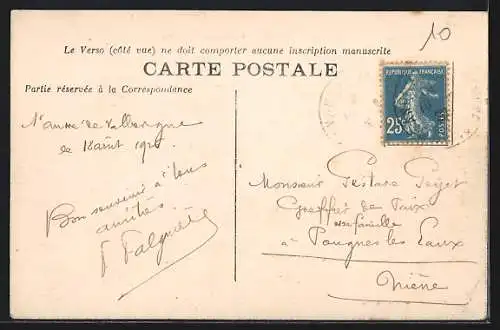 10
Le Verso (côté vue) ne doit comporter aucune inscription manuscrite
CARTE POSTALE
Partie réservée à la Correspondance
RÉPUBLIQUE FRANÇAISE
25c
POSTES
de
le 18 août
Bon souvenir à tous
amitiés
Monsieur
Greffier de Paix
et famille
à Pougues les Eaux
Nièvre